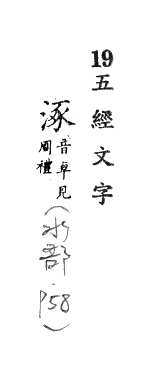 19五經文字
涿音卓見周禮(水部 P58)